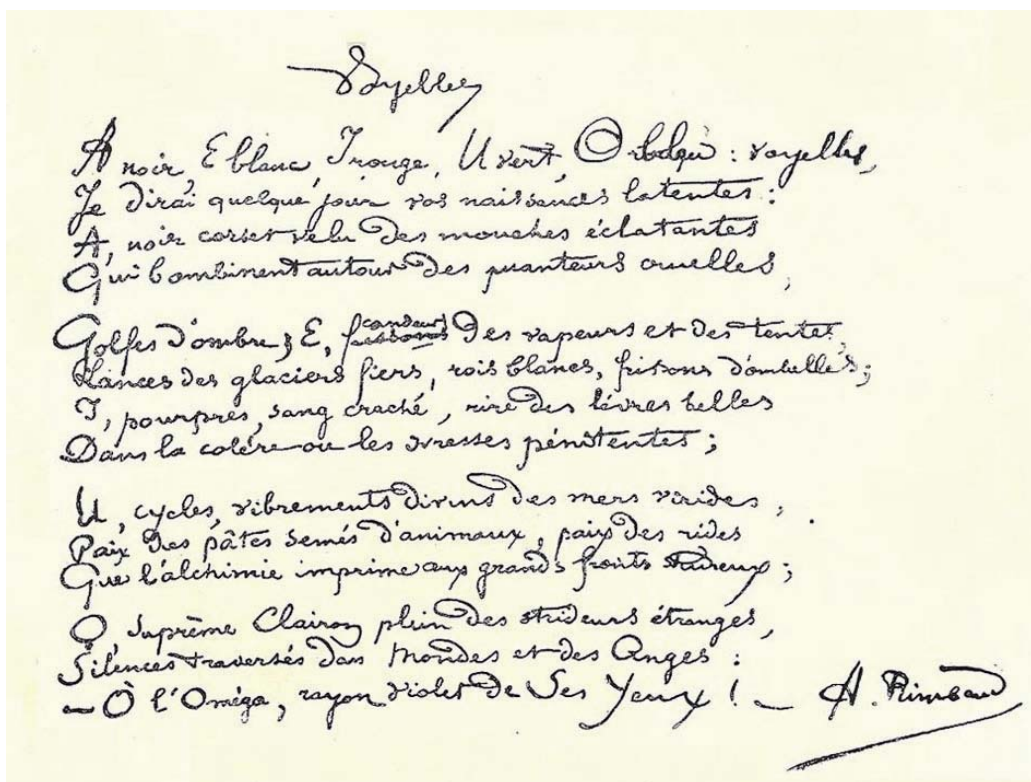 Voyelles
A noir, E blanc, I rouge, U vert, O bleu : voyelles,
Je dirai quelque jour vos naissances latentes :
A, noir corset velu des mouches éclatantes
Qui bombinent autour des puanteurs cruelles,
Golfes d'ombre ; E, frissons candeurs des vapeurs et des tentes,
Lances des glaciers fiers, rois blancs, frissons d'ombelles ;
I, pourpres, sang craché, rire des lèvres belles
Dans la colère ou les ivresses pénitentes ;
U, cycles, vibrements divins des mers virides,
Paix des pâtis semés d'animaux, paix des rides
Que l'alchimie imprime aux grands fronts studieux ;
O, suprême Clairon plein des strideurs étranges,
Silences traversés des Mondes et des Anges :
– O l'Oméga, rayon violet de Ses Yeux ! –
A. Rimbaud